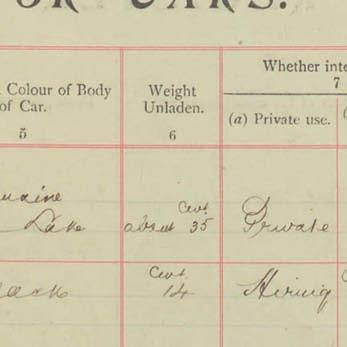 OR CARS.
Colour of Body
of Car.
5
Weight
Unladen.
6
Whether inte
7
(a) Private use.
Lake
Cwt
about 35
Private
Cwt
14
Hiring